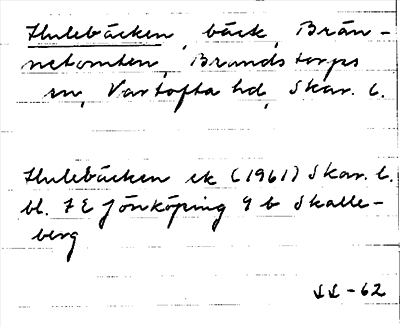 Hulebäcken, bäck, Brän-
netomten, Brandstorps
sn, Vartofta hd, Skar. l.
Hulebäcken ek (1961) Skar. l.
bl. 7 E Jönköping 9 b Skalle-
berg
-62